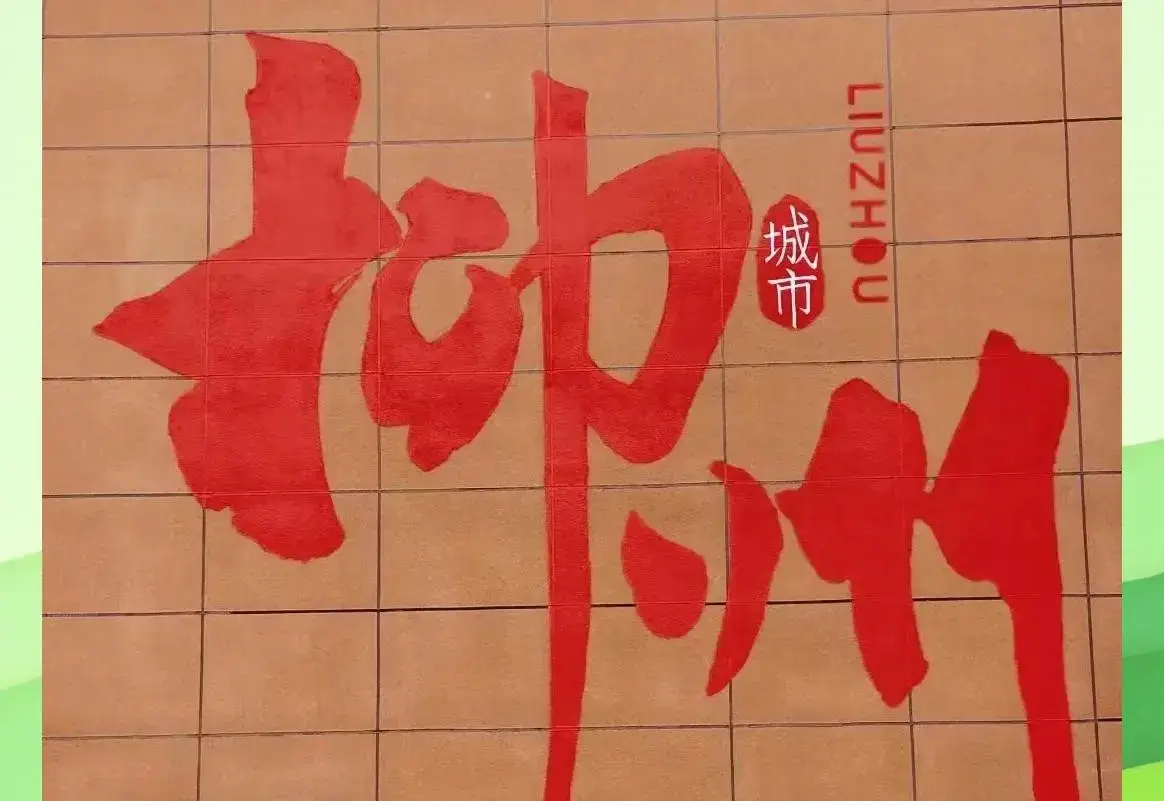 柳州
城市
LIUZHOU